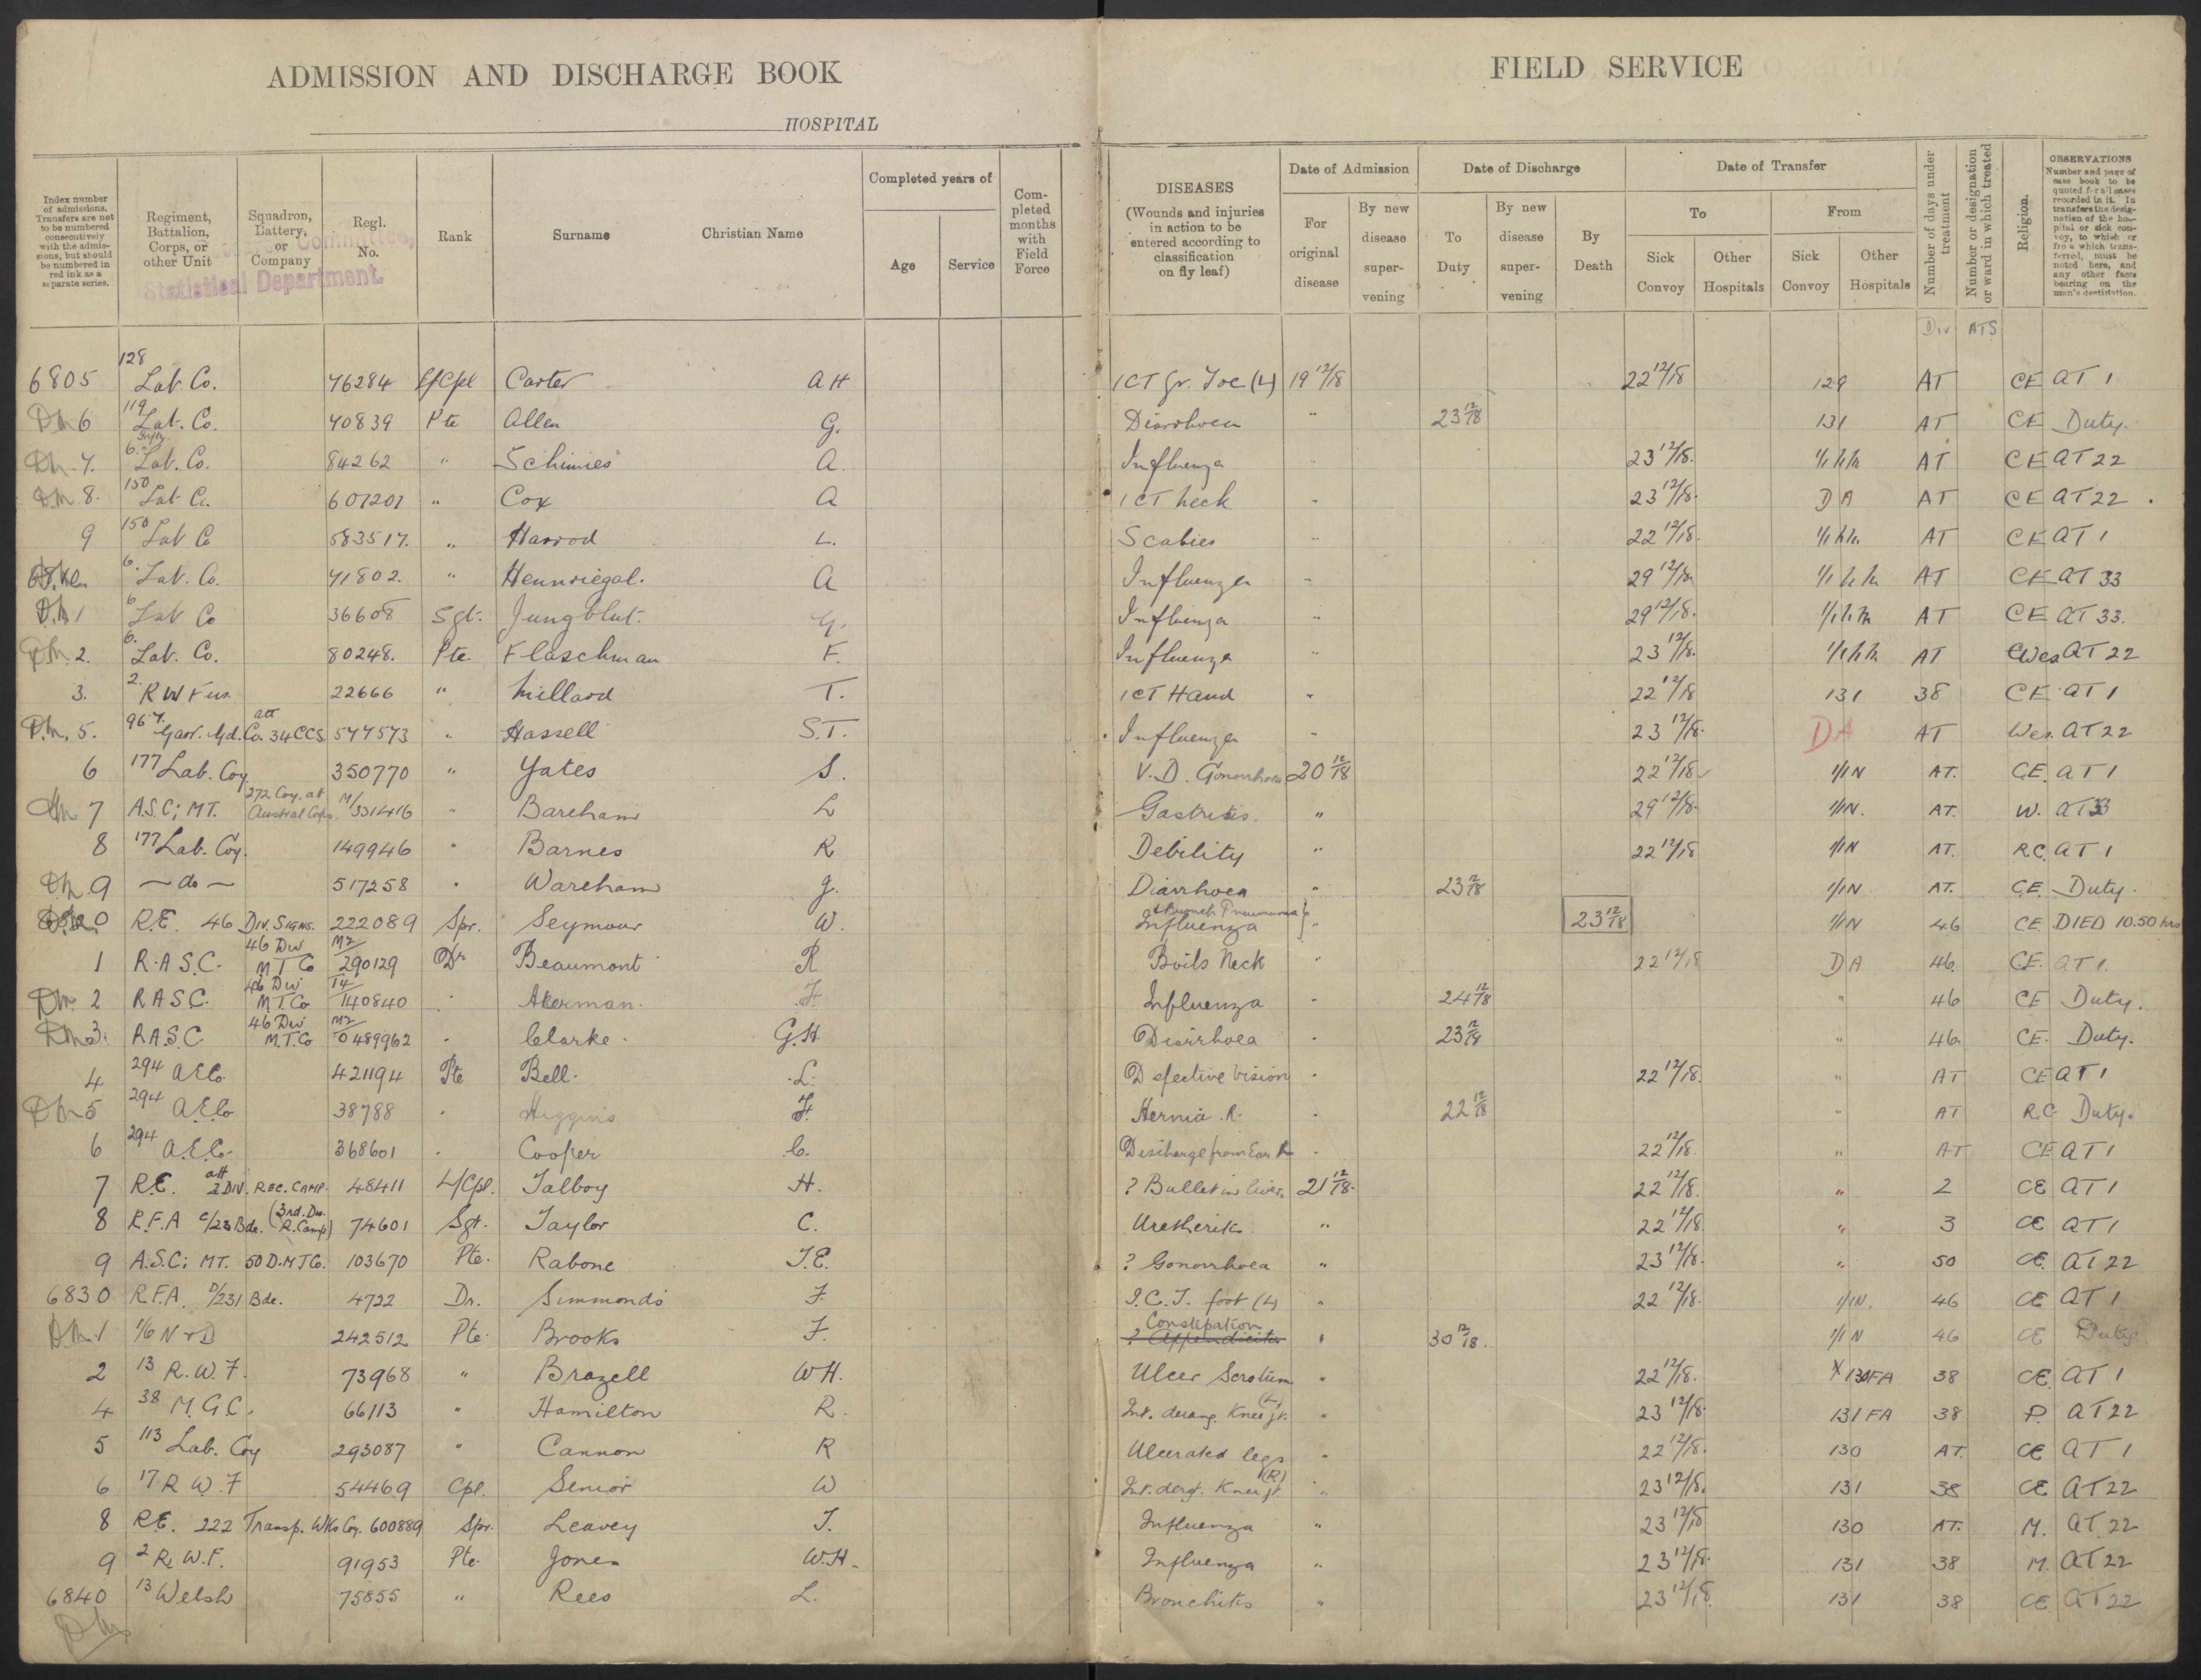 ADMISSION AND DISCHARGE BOOK
HOSPITAL
FIELD SERVICE
Index number of admissions. Transfers are not to be numbered consecutively with the admissions, but should be numbered in red ink as a separate series.
Regiment, Battalion, Corps, or other Unit
Squadron, Battery, or Company
Regl. No.
Rank
Surname
Christian Name
Completed years of
Age
Service
Completed months with Field Force
Statistical Department.
DISEASES
(Wounds and injuries in action to be entered according to classification on fly leaf)
Date of Admission
For original disease
By new disease supervening
Date of Discharge
To Duty
By new disease supervening
By Death
Date of Transfer
To
Sick Convoy
Other Hospitals
From
Sick Convoy
Other Hospitals
Number of days under treatment
Number or designation or ward in which treated
Religion.
OBSERVATIONS
Number and page of case book to be quoted for all cases recorded in it. In transfers the designation of the hospital or sick convoy, to which or from which transferred, must be noted here, and any other facts bearing on the man's destination.
Div ATS
6805 128 Lab. Co. 76284 L/Cpl Carter A H ICT Gr. Toe (L) 19 12/18 22 12/18 129 AT CE AT 1
6 119 Lab. Co. 40839 Pte Allen G. Diarrhoea " 23 12/18 131 AT CE Duty.
7. 6. Lab. Co. 84262 " Schimies A. Influenza 23 12/18. AT CE AT 22
8. 150 Lab Co. 601201 " Cox A ICT neck " 23 12/18. DA AT CE AT 22
9 150 Lab Co 583517. " Harrod L. Scabies " 22 12/18. AT CE AT 1
6. Lab. Co. 41802. " Hennriegal. A Influenza " 29 12/18 AT CE AT 33
1 6 Lab Co 36608 Sgt. Jungblut. Influenza " 29 12/18. AT CE AT 33.
2. 6. Lab. Co. 80248. Pte. Flaschman F. Influenza " 23 12/18. AT Wes AT 22
3. 2. R W Fus. 22666 " Millard T. ICT Hand " 22 12/18 131 38 CE AT 1
5. 967. Garr. Gd. Co. att 34 CCS 577573 " Hassell S.T. Influenza " 23 12/18. DA AT Wes. AT 22
6 177 Lab. Coy. 350770 " Yates S. V.D. Gonorrhoea 20 12/18 22 12/18 1/1N AT. CE. AT 1
7 A.S.C; MT. 272 Coy. att Austral Corps. M/331416 " Bareham L Gastritis. " 29 12/18. 1/1N. AT. W. AT 33
8 177 Lab. Coy. 149946 " Barnes R Debility " 22 12/18 1/1N AT. RC. AT 1
9 — do — 517258 " Wareham G. Diarrhoea " 23 12/18 1/1N AT. CE. Duty.
R.E. 46 DIV. SIGNS. 222089 Spr. Seymour W. Influenza & Bronch. Pneumonia " 23 12/18 1/1N 46 CE. DIED 10.50 hrs
1 R.A.S.C. 46 Div M T Co M2/290129 Dr Beaumont R Boils Neck " 22 12/18 DA 46. CE. AT 1.
2 R A S C. 46 Div M.T.Co T4/140840 " Akerman. F. Influenza " 24 12/18 " 46 CE Duty.
3. R A.S.C. 46 Div M.T.Co M2/0489962 " Clarke. G.H. Diarrhoea " 23 12/18 " 46. CE. Duty.
4 294 A.E.Co. 421194 Pte Bell. L. Defective Vision " 22 12/18. " AT CE AT 1
5 294 A.E.Co 38788 " Higgins F. Hernia. R. " 22 12/18 " AT R.C. Duty.
6 294 A.E.Co. 368601 " Cooper C. Discharge from Ear R " 22 12/18. " AT CE AT 1
7 R.E. att 2 DIV. REC. CAMP. 48411 L/Cpl. Talboy H. ? Bullet in liver. 21 12/18. 22 12/18. " 2 CE AT 1
8 R.F.A C/23 Bde. (3rd. Div. R. Camp) 74601 Sgt. Taylor C. Uretheritis " 22 12/18 " 3 CE AT 1
9 A.S.C; MT. 50 D.M T Co. 103670 Pte. Rabone T.E. ? Gonorrhoea " 23 12/18. " 50 CE. AT 22
6830 R.F.A. D/231 Bde. 4722 Dr. Simmonds F. I.C.T. foot (L) " 22 12/18. 1/1N. 46 CE AT 1
1 1/6 N + D 242512 Pte. Brooks F. ? Appendicitis Constipation " 30 12/18. 1/1N 46 CE Duty
2 13 R.W.F. 73968 " Brazell W H. Ulcer Scrotum " 22 12/18. 130FA 38 CE. AT 1
4 38 M.G.C. 66113 " Hamilton R. Int. derang. Knee jt. (L) " 23 12/18 131 FA 38 P. AT 22
5 113 Lab. Coy 293087 " Cannon R Ulcerated legs " 22 12/18. 130 AT. CE AT 1
6 17 R W. F 54469 Cpl. Senior W Int. derg. Knee jt. (R) " 23 12/18. 131 38 CE AT 22
8 R.E. 222 Transp. Wks Coy. 600889 Spr. Leavey J. Influenza " 23 12/18 130 AT. M. AT 22
9 2 R. W.F. 91953 Pte. Jones W.H. Influenza " 23 12/18. 131 38 M. AT 22
6840 13 Welsh 75855 " Rees L. Bronchitis " 23 12/18. 131 38 CE. AT 22